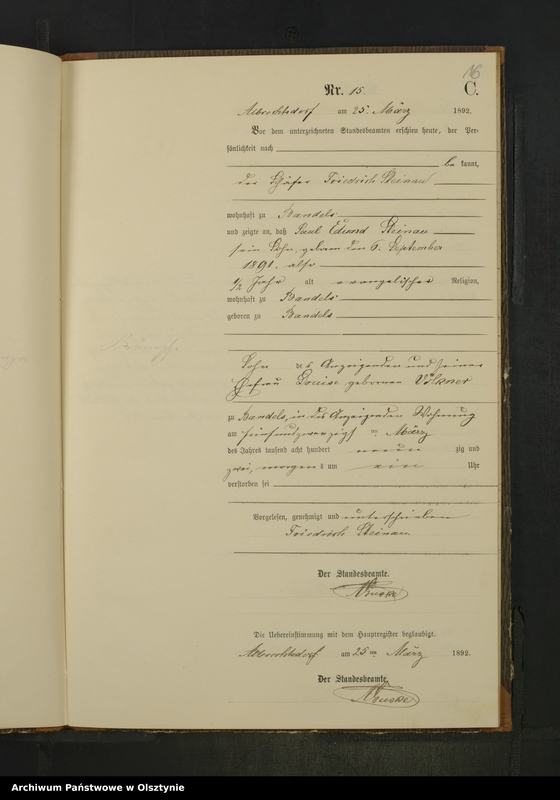 16
Nr. 15. C.
Albrechtsdorf am 25. März 1892.
Vor dem unterzeichneten Standesbeamten erschien heute, der Per-
sönlichkeit nach
be kannt,
der Schäfer Friedrich Steinau
wohnhaft zu Bandels
und zeigte an, daß Paul Eduard Steinau
sein Sohn, geboren den 6. September
1891, also
1/2 Jahr alt evangelischer Religion,
wohnhaft zu Bandels
geboren zu Bandels
Sohn des Anzeigenden und seiner
Ehefrau Louise geborenen Völkner
zu Bandels, in des Anzeigenden Wohnung
am fünfundzwanzigsten März
des Jahres tausend acht hundert neun zig und
zwei, morgens um ein Uhr
verstorben sei
Vorgelesen, genehmigt und unterschrieben
Friedrich Steinau
Der Standesbeamte.
Die Uebereinstimmung mit dem Hauptregister beglaubigt.
Albrechtsdorf am 25ten März 1892.
Der Standesbeamte.
Archiwum Państwowe w Olsztynie